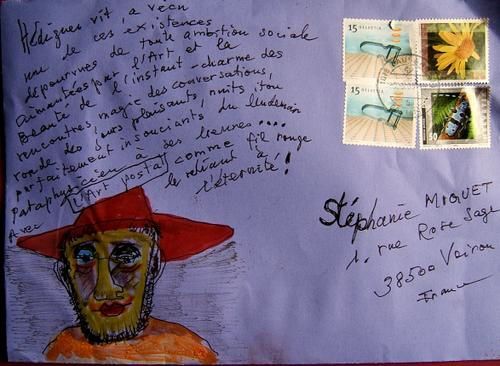 Hédiguer vit, a vécu
une de ces existences
dépourvues de toute ambition sociale
aimantées par l'Art et la
Beauté de l'instant - charme des
rencontres, magie des conversations,
ronde des jours plaisants, nuits
parfaitement insouciants du lendemain
à ses heures....
Avec l'Art postal comme fil rouge
le reliant à
l'éternité!
15 HELVETIA
15
Stéphanie MIQUET
1, rue Rose Sage
38500 Voiron
France